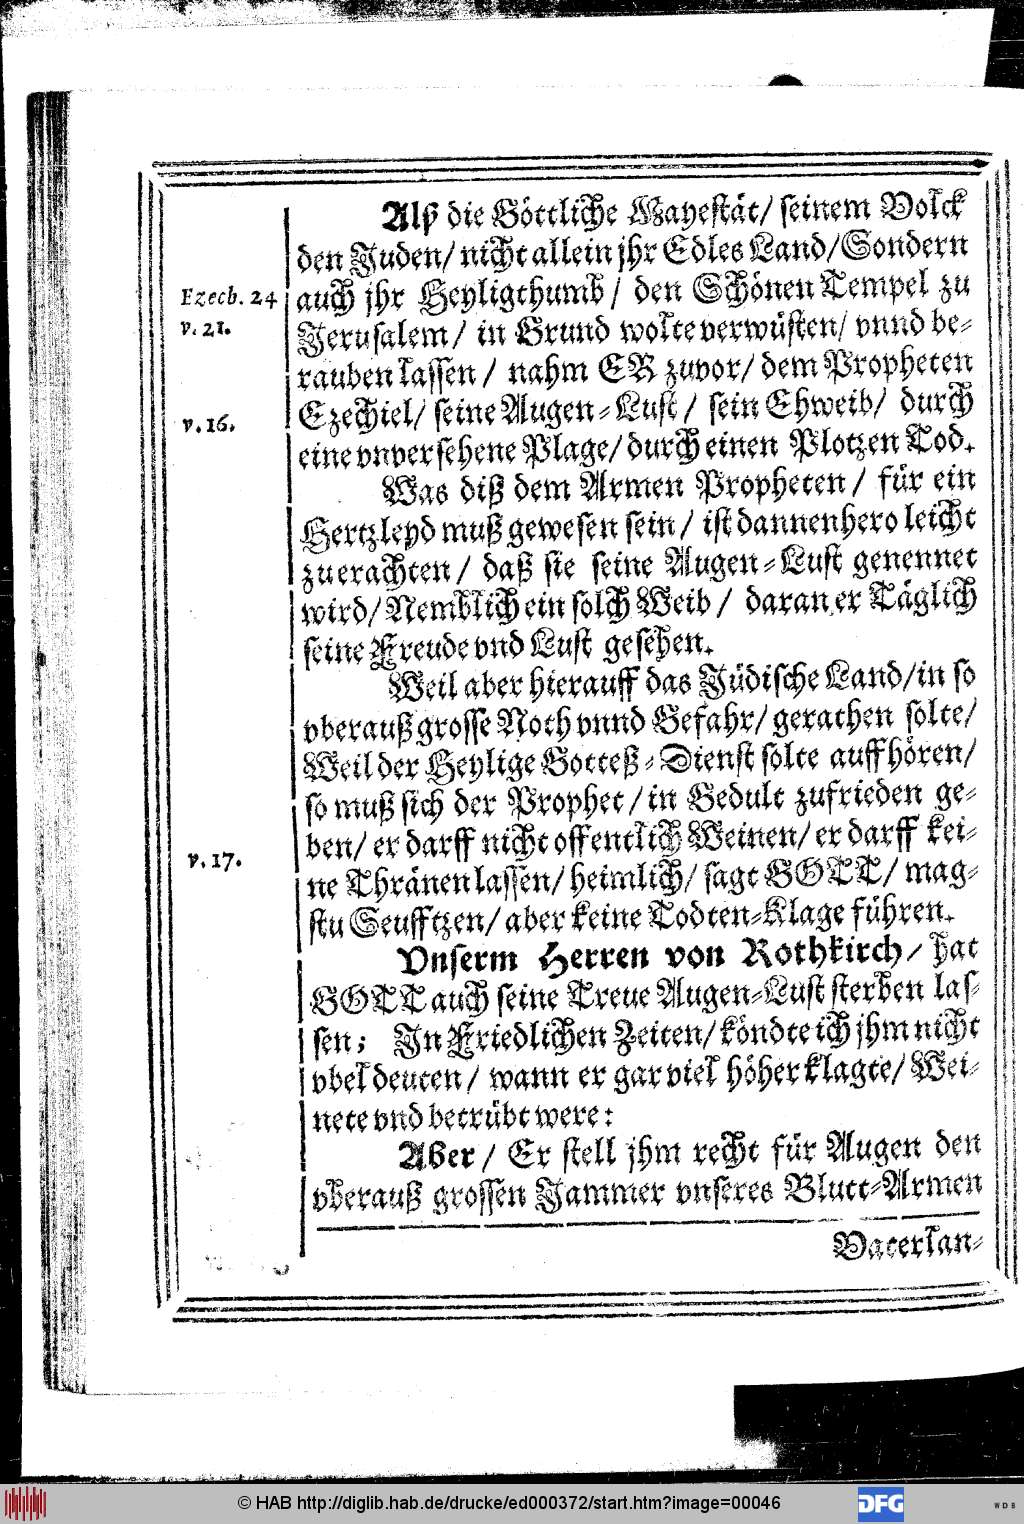 Alß die Göttliche Mayestät/ seinem Volck
den Juden/ nicht allein jhr Edles Land/ Sondern
Ezech. 24
auch jhr Heyligthumb/ den Schönen Tempel zu
v. 21.
Jerusalem/ in Grund wolte verwüsten/ vnnd be-
rauben lassen/ nahm ER zuvor/ dem Propheten
v. 16.
Ezechiel/ seine Augen-Lust/ sein Ehweib/ durch
eine vnversehene Plage/ durch einen Plotzen Tod.
Was diß dem Armen Propheten/ für ein
Hertzleyd muß gewesen sein/ ist dannenhero leicht
zu erachten/ daß sie seine Augen-Lust genennet
wird/ Nemblich ein solch Weib/ daran er Täglich
seine Freude vnd Lust gesehen.
Weil aber hierauff das Jüdische Land/ in so
vberauß grosse Noth vnnd Gefahr/ gerathen solte/
Weil der Heylige Gotteß-Dienst solte auffhören/
so muß sich der Prophet/ in Gedult zufrieden ge-
ben/ er darff nicht offentlich Weinen/ er darff kei-
v. 17.
ne Thränen lassen/ heimlich/ sagt GOTT/ mag-
stu Seufftzen/ aber keine Todten-Klage führen.
Vnserm Herren von Rothkirch/ hat
GOTT auch seine Treue Augen-Lust sterben las-
sen; Jn Friedlichen Zeiten/ köndte ich jhm nicht
vbel deuten/ wann er gar viel höher klagte/ Wei-
nete vnd betrübt were:
Aber/ Er stell jhm recht für Augen den
vberauß grossen Jammer vnseres Blutt-Armen
Vaterlan-
© HAB http://diglib.hab.de/drucke/ed000372/start.htm?image=00046
DFG
WDB